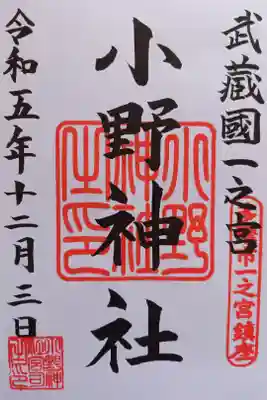 武蔵國一之宮
小野神社
令和五年十二月三日
小野神社之印
一之宮鎮座